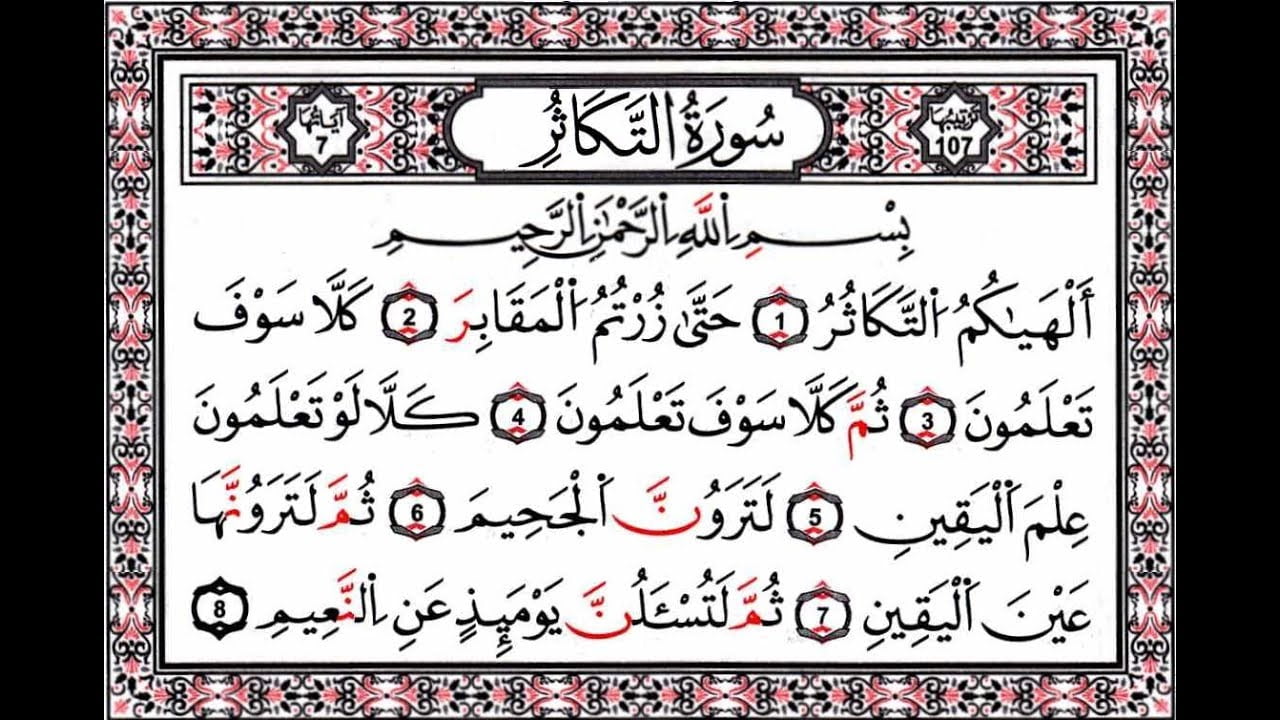 ترتيبها
107
سُورَةُ التَّكَاثُرِ
آيَاتُهَا
7
بِسْمِ اِللَّهِ اِلرَّحْمَٰنِ اِلرَّحِيمِ
أَلْهَيٰكُمُ اُلتَّكَاثُرُ 1 حَتَّىٰ زُرْتُمُ اُلْمَقَابِرَ 2 كَلَّا سَوْفَ
تَعْلَمُونَ 3 ثُمَّ كَلَّا سَوْفَ تَعْلَمُونَ 4 كَلَّا لَوْ تَعْلَمُونَ
عِلْمَ اَلْيَقِينِ 5 لَتَرَوُنَّ اَلْجَحِيمَ 6 ثُمَّ لَتَرَوُنَّهَا
عَيْنَ اَلْيَقِينِ 7 ثُمَّ لَتُسْـَٔلُنَّ يَوْمَئِذٍ عَنِ اِلنَّعِيمِ 8